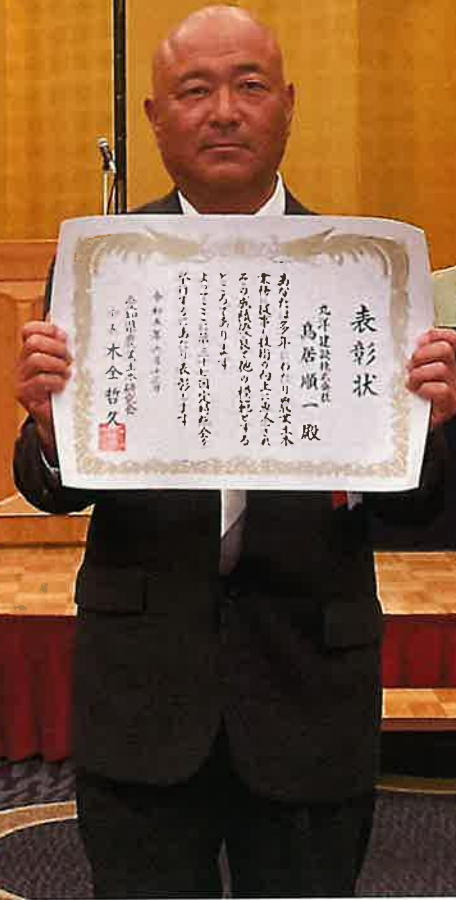 表彰状
丸洋建設株式会社
鳥居順一 殿
あなたは多年にわたり農業土木
業務に従事し技術の向上に専念され
その成績優良で他の模範とする
ところであります
よってここに第三十七回定時総会を
令和五年
愛知県農業土木研究会
会長 木全哲久